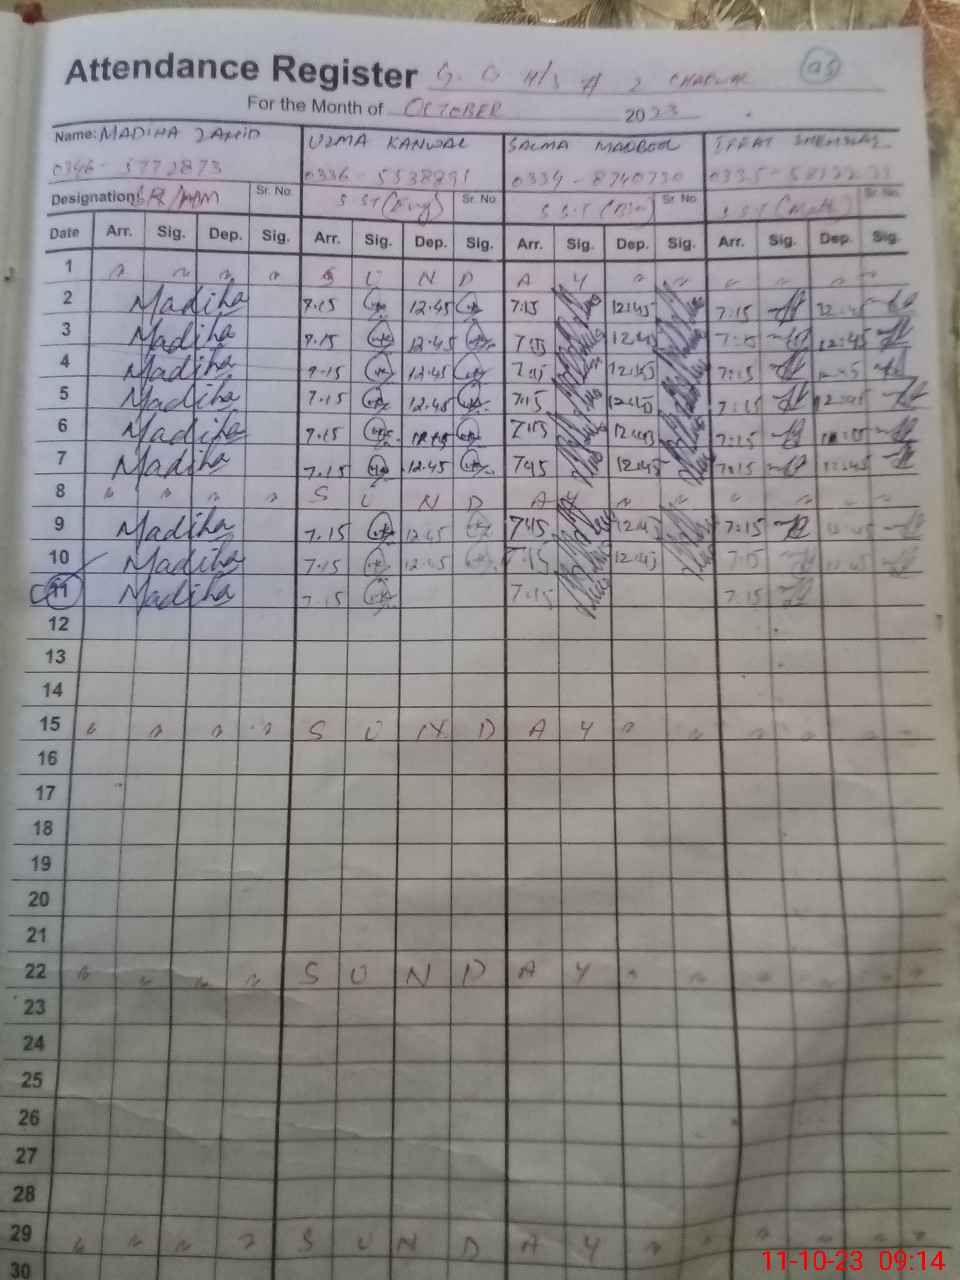 Attendance Register G. G H/S # 2 CHAKWAL 05
For the Month of OCTOBER 2023
Name: MADIHA ZAHID UZMA KANWAL SALMA MAQBOOL IFFAT
0346-5772873 0336-5538891 0334-8740730
Designation SR/HM Sr. No. S ST (Eng) Sr. No. S S.T (Bio) Sr No. S S T (Math) Sr. No.
Date Arr. Sig. Dep. Sig. Arr. Sig. Dep. Sig. Arr. Sig. Dep. Sig. Arr. Sig. Dep. Sig.
1 S U N D A Y
2 Madiha 7.15 12.45 7:15 12:45 7:15 12:45
3 Madiha 7.15 12.45 7:15 12:45 7:15 12:45
4 Madiha 7.15 12.45 7:15 12:45 7:15 12:45
5 Madiha 7.15 12.45 7:15 12:45 7:15 12:45
6 Madiha 7.15 7:15 7:15
7 Madiha 7.15 12.45 7:15 12:45 7:15 12:45
8 S U N D A Y
9 Madiha 7.15 12.45 7:15 12:45 7:15 12:45
10 Madiha 7.15 12.45 7:15 12:45 7:15 12:45
11 Madiha 7.15 7:15 7:15
12
13
14
15 S U N D A Y
16
17
18
19
20
21
22 S U N D A Y
23
24
25
26
27
28
29 S U N D A Y
30
11-10-23 09:14